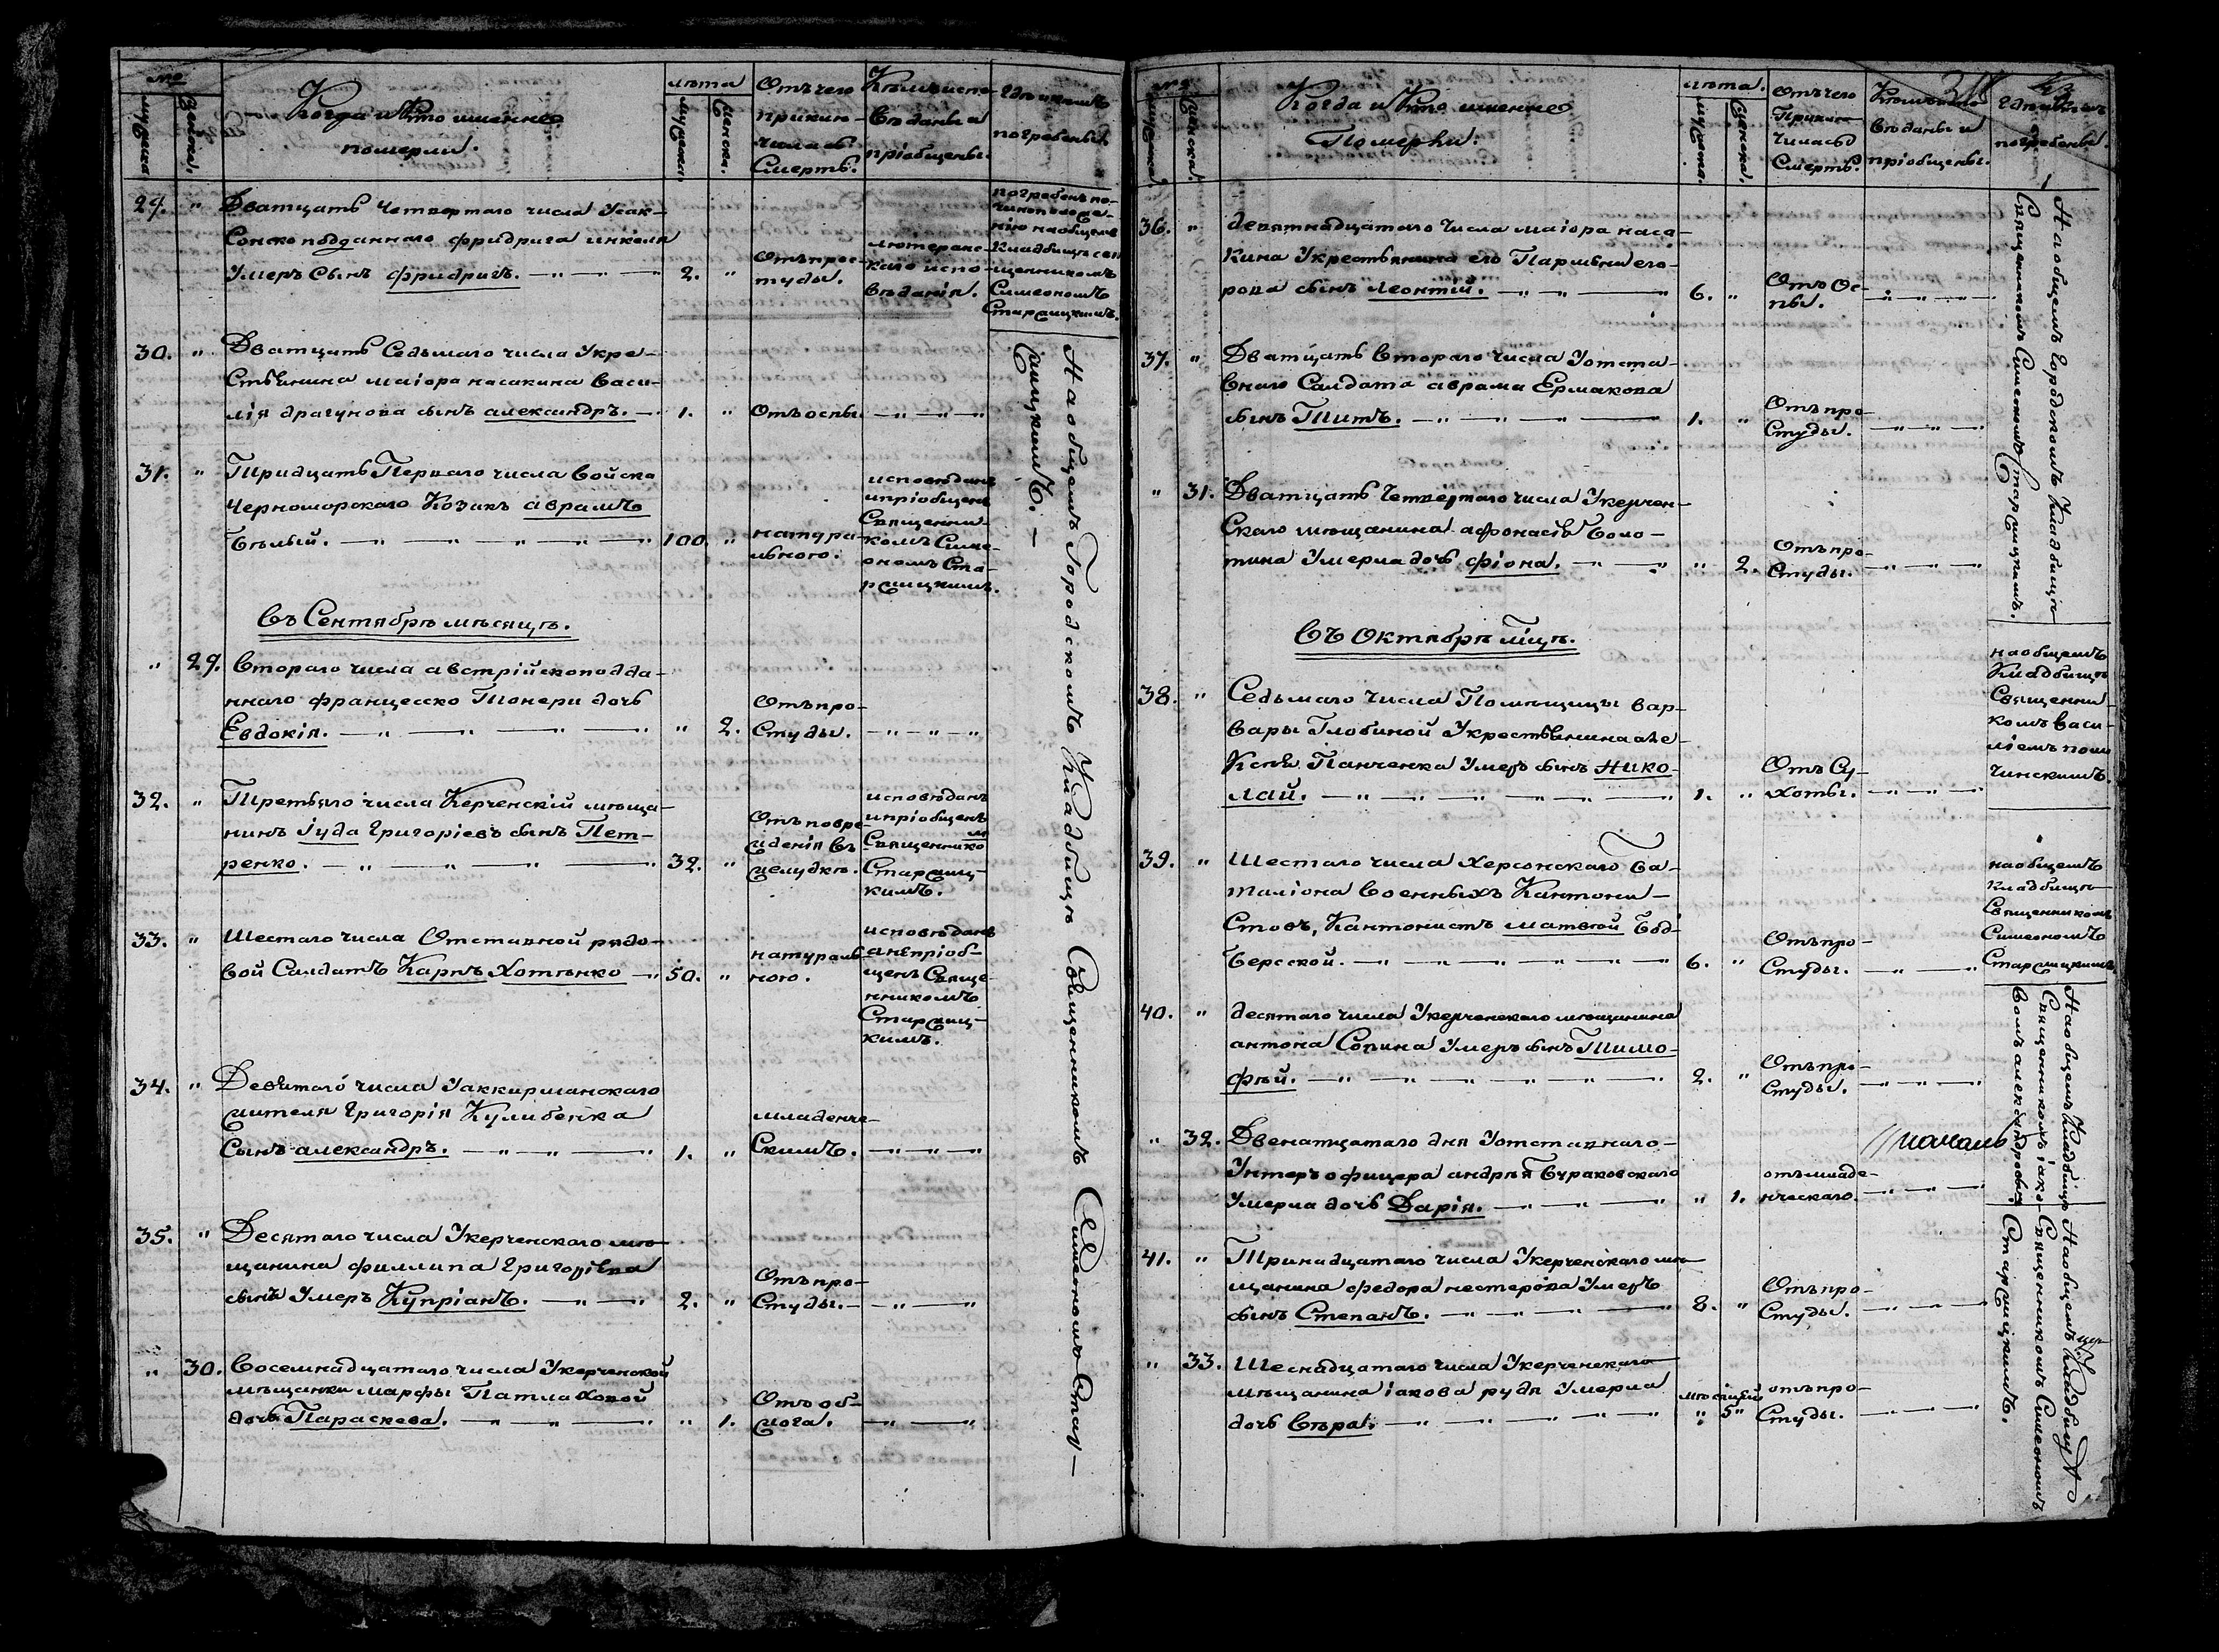 №
мужеска
женска.
Когда и Кто имянно
померли.
лѣта
мужеска.
женска.
Отъ чего
приклю-
чилась
Смерть.
Кѣмъ испо-
вѣданы и
пріобщены.
гдѣ и кѣмъ
погребены.
29. "
Дватцать четвертаго числа Усак-
Сонско подданнаго фридриха
Умеръ Сынъ фридрихъ. — " — " —
2. "
Отъ прос-
туды.
лютеранс-
каго испо-
вѣданія.
погребенъ по
чиноположе-
нію на общемъ
Кладбищѣ свя
щенникомъ
Симеономъ
Старжицкимъ.
30. "
Дватцать Седьмаго числа Укре-
Стьянина маіора насакина Васи-
лія драгунова сынъ александръ. —
1. "
Отъ оспы. — " — " —
31. "
Тридцать Перваго числа Войска
Черноморскаго Козакъ аврамъ
Бѣлый. — " — " — " — " —
100. "
натура-
льного.
исповѣданъ
и пріобщенъ
Священни-
комъ Симе-
ономъ Ста-
ржицкимъ.
въ Сентябрѣ мѣсяцѣ.
" 29.
Втораго числа австрійскоподда-
ннаго францеско Тонери дочь
Евдокія. — " — " — " —
" 2.
Отъ про-
Студы. — " — " —
32. "
Третьяго числа Керченскій мѣща-
нинъ іуда Григоріевъ сынъ Пет-
ренко. — " — " — " —
32. "
Отъ повре-
жденія въ
желудкѣ.
исповѣданъ
и пріобщенъ
Священнико
мъ
Старжиц-
кимъ.
33. "
Шестаго числа Отставной рядо-
вой Солдатъ Карпъ Хотѣнко —
50. "
натураль-
ного.
исповѣданъ
и пріоб-
щенъ Свяще-
нникомъ
Старжиц-
кимъ.
34. "
Девятаго числа Уаккирманскаго
жителя Григорія Кулибенка
Сынъ александръ. — " — " —
1. "
младенче-
Скимъ. — " — " —
35. "
Десятаго числа Укерченскаго мѣ-
щанина филлипа Григорієва
сынъ Умеръ Купріанъ. — " — "
2. "
Отъ про-
Студы. — " —
" 30.
Восемнадцатаго числа Укерченской
мѣщанки марфы Патлаховой
дочь Параскева. — " — " —
" 1.
Отъ об-
жога. — " —
На общемъ Городскомъ Кладбищѣ Священникомъ Симеономъ Стар-
жицкимъ. —
№
мужеска
женска.
Когда и Кто имянно
Померли.
лѣта.
мужеска.
женска.
Отъ чего
Приклю-
чилась
Смерть.
вѣданы и
пріобщены.
погребены.
36. "
девятнадцатаго числа маіора наса-
кина Укрестьянина его Парфена его-
рова сынъ леонтій. — " — " —
6. "
Отъ Ос-
пы. — " — " —
37. "
Дватцать Втораго числа Уотста-
внаго Солдата аврама Ермакова
сынъ Титъ. — " — " — " —
1. "
Отъ про-
Студы. — " — " —
" 31.
Дватцать Четвертаго числа Укерчен-
Скаго мѣщанина афонасія Боло-
тина Умерла дочь фіона. — " —
" 2.
Отъ про-
Студы. — " — " —
На общемъ Городскомъ Кладбищѣ
Священникомъ Симеономъ Старжицкимъ.
въ Октябрѣ М҃цѣ.
38. "
Седьмаго числа Помѣщицы вар-
вары Глобиной Укрестьянина але-
Ксѣя Панченка Умеръ сынъ Нико-
лай. — " — " — " — " —
1. "
Отъ Су-
хоты. — " — " —
на общемъ
Кладбищѣ
Священни-
комъ Васи-
ліемъ
39. "
Шестаго числа Херсонскаго Ба-
таліона Военныхъ Кантони-
Стовъ, Кантонистъ матвей Бод-
Берсской. — " — " — " — "
6. "
Отъ про-
Студы. — " — "
на общемъ
кладбищѣ
Священникомъ
Симеономъ
Старжицкимъ.
40. "
десятаго числа Укерченскаго мѣщанина
антона Совина Умеръ сынъ Тимо-
фѣй. — " — " — " — " —
2. "
Отъ про-
Студы. — " — " —
" 32.
Двенатцатаго дня Уотставнаго
Унтеръ офицера андрѣя Бураковскаго
Умерла дочь Дарія. — " — " —
" 1.
отъ младе-
нческаго. — " — " —
На общемъ Кладбищѣ
Священникомъ іако-
вомъ александровымъ
41. "
Тринадцатаго числа Укерченскаго мѣ-
щанина федора нестерова Умеръ
сынъ Степанъ. — " — " —
8. "
Отъ про-
Студы. — " — " —
" 33.
Шеснадцатаго числа Укерченскаго
мѣщанина іакова рудя Умерла
дочь Вѣра. — " — " — " — "
" 5 "
отъ про-
Студы. — " — " —
На общемъ Кладбищѣ
Священникомъ Симеономъ
Старжицкимъ.